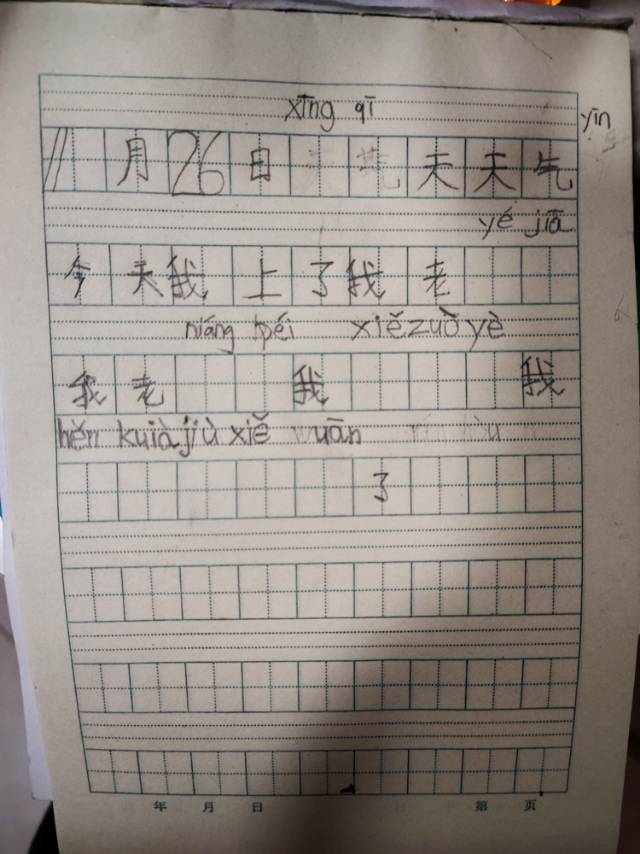 xīng qī
yīn
11月26日 天天气
yé jiā
今天我上了我老
niáng péi xiězuò yè
我老 我 我
hěn kuià jiù xiě wuān
了
年 月 日 第 页